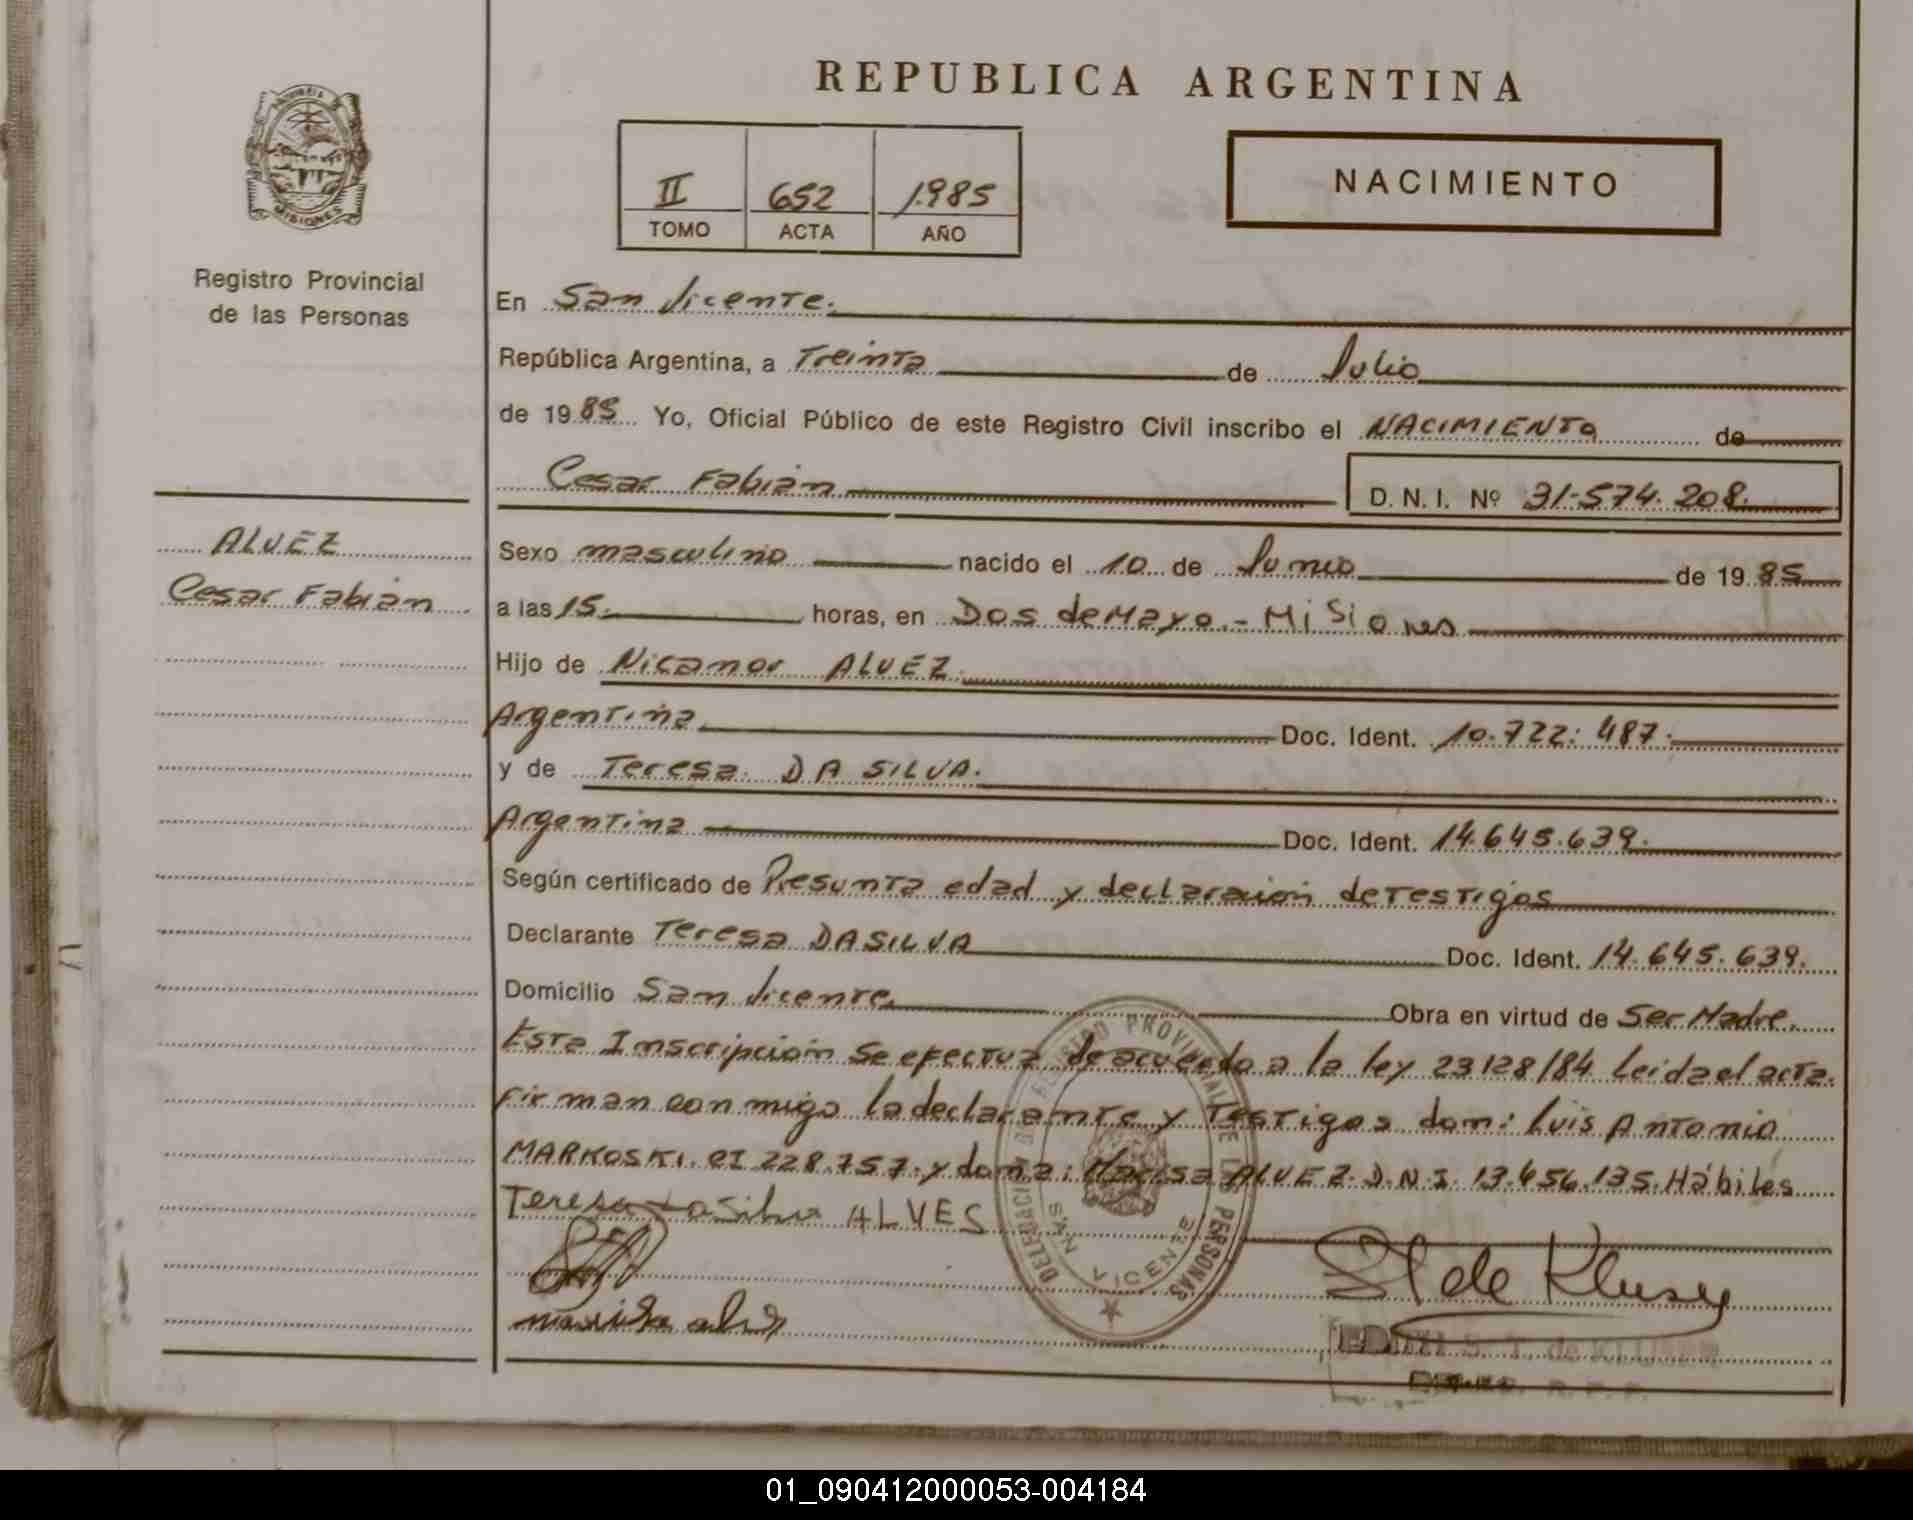 REPUBLICA ARGENTINA
PROVINCIA DE
MISIONES
Registro Provincial
de las Personas
II 652 1.985
TOMO ACTA AÑO
NACIMIENTO
En San Vicente.
República Argentina, a Treinta de Julio
de 1985 Yo, Oficial Público de este Registro Civil inscribo el NACIMIENTO de
Cesar Fabián D. N. I. Nº 31-574.208.
ALVEZ
Cesar Fabián
Sexo masculino nacido el 10 de Junio de 1985
a las 15. horas, en Dos de Mayo.- Misiones
Hijo de Nicanor ALVEZ.
Argentina Doc. Ident. 10.722.487.
y de Teresa DA SILVA.
Argentina Doc. Ident. 14.645.639.
Según certificado de Presunta edad y declaración de testigos
Declarante Teresa DA SILVA Doc. Ident. 14.645.639.
Domicilio San Vicente. Obra en virtud de Ser Madre.
Esta Inscripción se efectua de acuerdo a la ley 23128/84 Leida el acta.
Firman con migo la declarante y Testigos don: Luis Antonio
MARKOSKI. CI 228.757. y doña: Marisa ALVEZ. D.N.I. 13.456.135. Hábiles
Teresa Da Silva ALVES
DELEGACION REGISTRO PROVINCIAL DE LAS PERSONAS
SAN VICENTE
de Klusy
S. T. de
R. P. P.
01_090412000053-004184